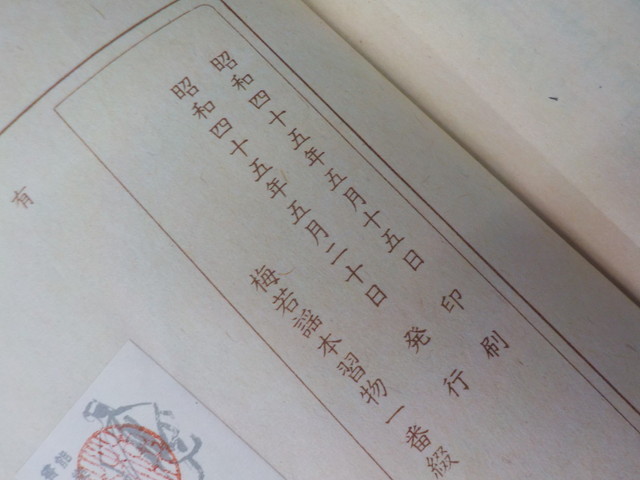 昭和四十五年五月十五日 印刷
昭和四十五年五月二十日 発行
梅若謡本習物一番綴
有